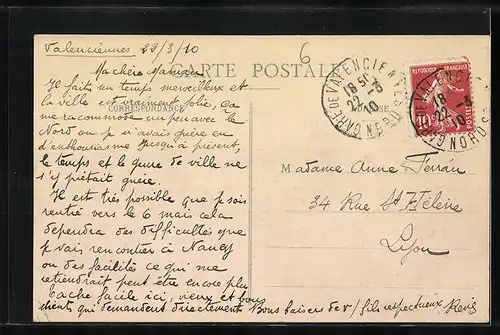 Valenciennes 22/3/10
6
CARTE POSTALE
CORRESPONDANCE
ADRESSE
Ma chère Maman
Il fait un temps merveilleux et
la ville est vraiment jolie, ça
me raccommode un peu avec le
Nord où je n'avais guère eu
d'enthousiasme jusqu'à présent,
le temps et le genre de ville ne
s'y prêtait guère.
Il est très possible que je sois
rentré vers le 6 mais cela
dépendra des difficultés que
je vais rencontrer à Nancy
ou des facilités ce qui me
retiendrait peut être encore plus
Tache facile ici, vieux et bons
clients qui demandent directement
Bons baisers de v/ fils respectueux
Madame Anne Ferrán
34 Rue St Hélène
Lyon
GARE DE VALENCIENNES
NORD
18
22 -3
10
REPUBLIQUE FRANÇAISE
10
POSTES
VALENCIEN
GARE
NORD
18
22 -3
10